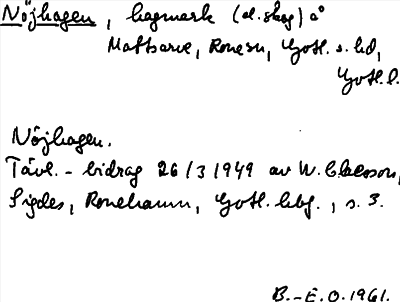 Nöjhagen, hagmark (el. skog) å
Mattsarve, Ronesn, Gotl. s. hd,
Gotl. l.
Nöjhagen.
Tävl.-bidrag 26/3 1949 av W. Claesson,
Sigdes, Ronehamn, Gotl. , s. 3.
B.-E. O. 1961.